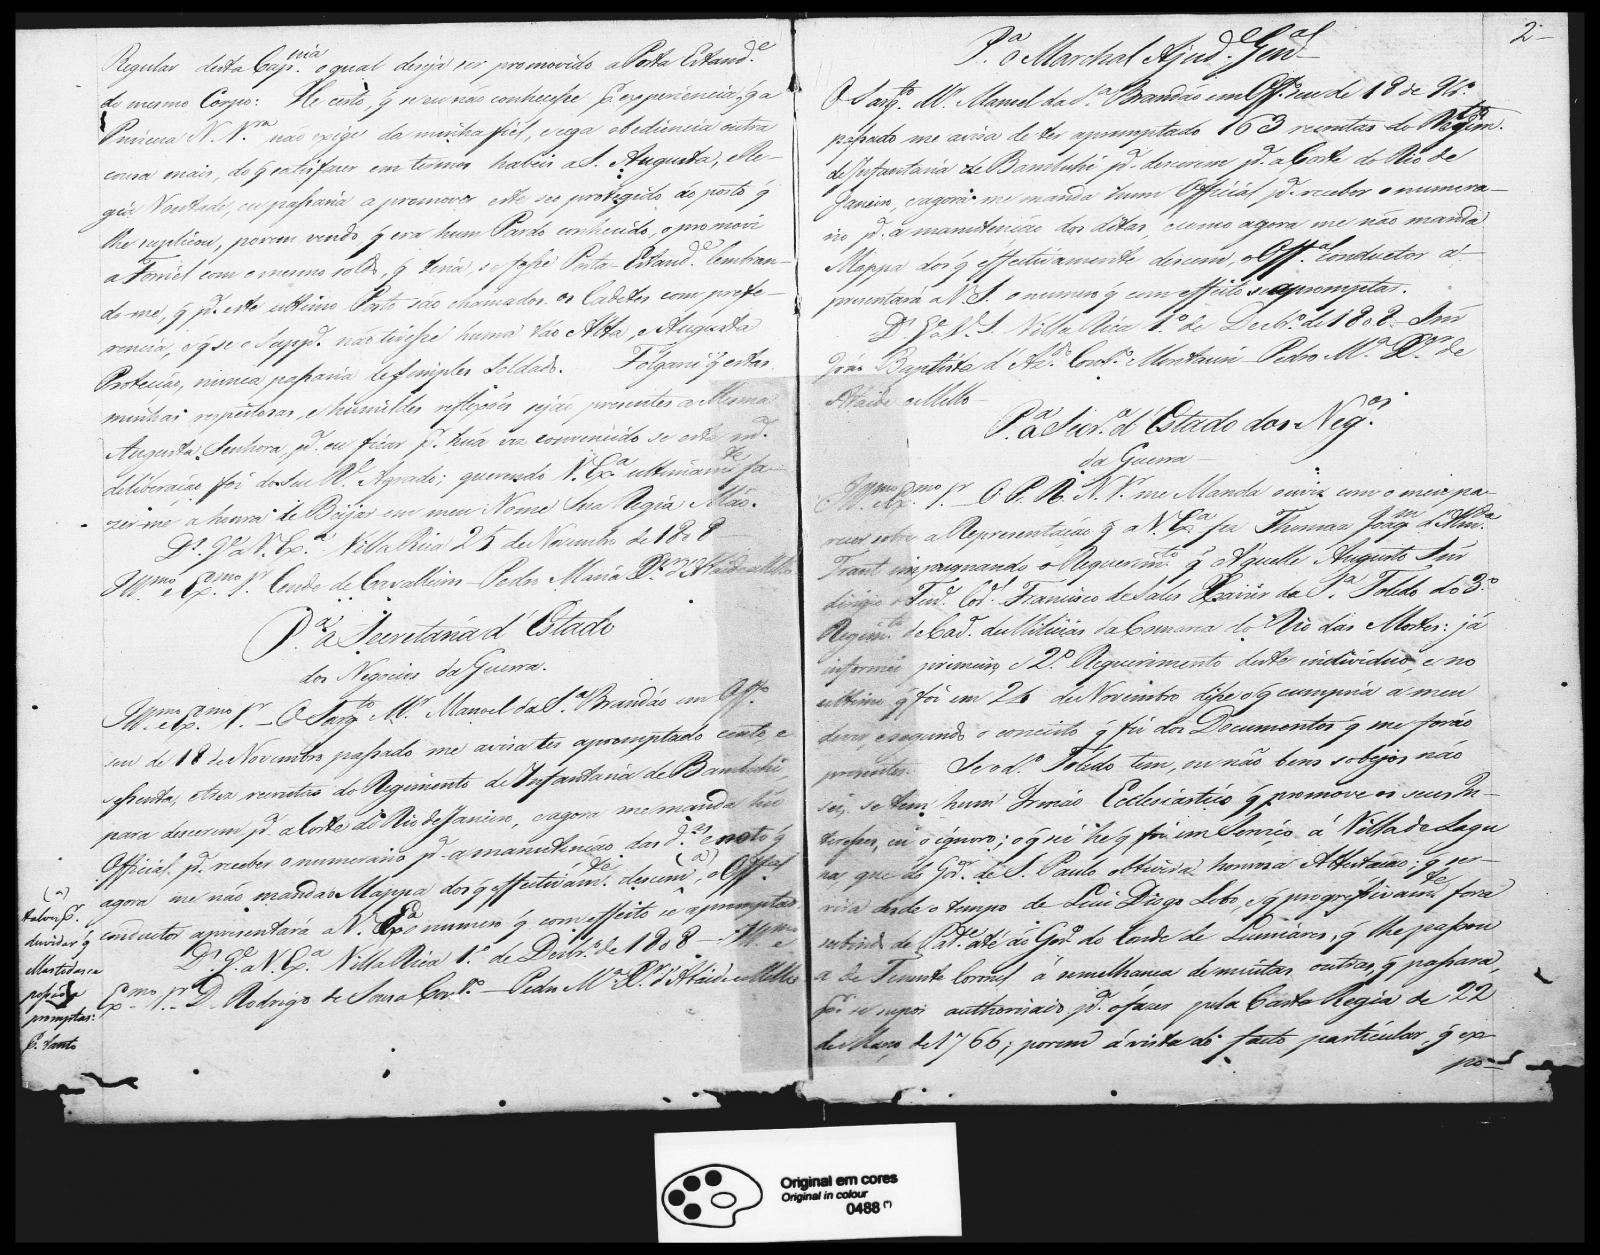 Regular desta Cap.nia o qual deseja ser promovido a Porta Estand.e
do mesmo Corpo: He certo, q̃ se eu não conhecesse p.r experiencia, q̃ a
Primeira N. N.ra não exige da minha fiel, e cega obediencia outra
cousa mais, do q̃ satisfazer em termos habeis a S. Augusta, e Re-
gia Vontade, eu passaria a promover este seo protegido ao posto q̃
lhe suplicou, porem vendo q̃ era hum Pardo conhecido, o promovi
a Forriel com o mesmo soldo, q̃ teria, se fosse Porta-Estand.e lembran-
do-me, q̃ p.a este ultimo Posto são chamados os Cadetes com prefe-
rencia, e q̃ se o supp.e não tivesse huma tão Alta, e Augusta
Proteção, nunca passaria de simples Soldado. Folgarei q̃ estas
minhas respeitosas, e humildes reflexões sejão presentes a Mesma
Augusta Senhora, p.a eu ficar p.r húa vez convencido se esta m.a
deliberação foi do seu R.l Agrado; querendo V. Ex.a ultimam.te fa-
zer-me a honra de Beijar em meu Nome Sua Regia Mão.
D.s G.e a V. Ex.a Villa Rica 25 de Novembro de 1808
Ill.mo e Ex.mo S.r Conde de Cavalleiros - Pedro Maria X.er d'Ataide e Mello
P.a a Secretaria d'Estado
dos Negocios da Guerra.
Ill.mo e Ex.mo S.r - O Sarg.to M.r Manoel da S.a Brandão em Off.o
seu de 18 de Novembro passado me avisa ter apromptado cento e
sessenta, e tres recrutas do Regimento de Infantaria de Bambuhi,
para descerem p.a a Corte do Rio de Janeiro, e agora me manda hú
Official p.a receber o numerario p.a a manutenção das d.as e noto q̃
agora me não manda o Mappa dos q̃ effectivam.te descem (a), o Off.al
conductor apresentará a V. Ex.a o numero q̃ com effeito se apromptar
D.s G.e a V. Ex.a Villa Rica 1.o de Dezbr.o de 1808 - Ill.mo e
Ex.mo S.r D. Rodrigo de Sousa Cout.o - Pedro M.a X.er d'Ataide e Mello
(a)
talvez p.r
duvidar q̃
promptas:
p.r tanto
2-
P.a o Marechal Ajud.e Gen.al
O Sarg.to M.r Manoel da S.a Brandão em Off.o seu de 18 de 9br.o
passado me avisa de ter apromptado 163 recrutas do Regim.to
de Infantaria de Bambuhi p.a descerem p.a a Corte do Rio de
Janeiro, e agora me manda hum Official p.a receber o numera-
rio p.a a manutenção dos ditos, e como agora me não manda
Mappa dos q̃ effectivamente descem, o Off.al conductor a-
presentará a V. S. o numero q̃ com effeito se apromptar.
D.s G.e a V. S. Villa Rica 1.o de Dezbr.o de 1808. Snr
João Baptista d'Az.do Cout.o Montauri - Pedro M.a X.er de
Ataide e Mello
P.a a Secr.a d'Estado dos Neg.os
da Guerra
Ill.mo e Ex.mo S.r O P. R. N. S.r me Manda ouvir com o meu pa-
recer sobre a Representação q̃ a V. Ex.a fez Thomaz Joaq.m d'Alm.da
Trant impugnando o Requerim.to q̃ A'quelle Augusto Snr
dirigio o Ten.e Cor.l Francisco de Sales Xavier da S.a Toledo do 3.o
Regim.to de Cav.a de Milicias da Comarca do Rio das Mortes: já
informei primeiro, e 2.o Requerimento deste individuo, e no
ultimo q̃ foi em 26 de Novembro disse o q̃ cumpria a meu
dever, e segundo o conceito q̃ fiz dos Documentos q̃ me forão
presentes. Se o d.o Toledo tem, ou não bens sobejos não
sei, se tem hum Irmão Ecclesiastico q̃ promove os seus In-
teresses, eu o ignoro; o q̃ sei he q̃ foi em Serviço á Villa de Lagu
na, que do Gov.r de S. Paulo obtivera honrosa Attestação; q̃ ser-
vira desde o tempo de Luis Diogo Lobo, e q̃ progressivam.te fora
subindo de Cad.te até ao Gov.o do Conde de Lumiares, q̃ lhe passou
a de Tenente Corn.el á semelhança de muitas outras q̃ passara,
p.r se supor authorisado p.a o fazer pela Carta Regia de 22
de Março de 1766; porem á vista do facto particular, q̃ ex
po-
Original em cores
Original in colour
0488 (*)